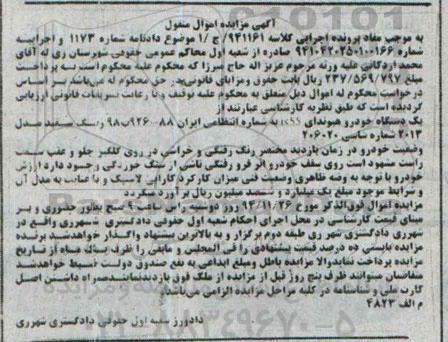 آگهی مزایده اموال منقول
به موجب مفاد پرونده اجرایی کلاسه ۹۳۱۱۶۱/ج /۱ موضوع دادنامه شماره ۱۱۷۳ و اجراییه
شماره ۹۴۱۰۴۲۰۲۵۰۱۰۰۱۶۶ صادره از شعبه اول محاکم عمومی حقوقی شهرستان ری له آقای
محمد اردکانی علیه ورثه مرحوم عزیز اله حاج میرزا که محکوم علیه محکوم است به پرداخت
مبلغ ۲۳۷/۵۶۹/۷۹۷ ریال بابت حقوق ومزایای قانونی در حق محکوم له می‌باشد بر اساس
درخواست محکوم له اموال ذیل متعلق به محکوم علیه توقیف و با رعایت تشریفات قانونی ارزیابی
گردیده است که طبق نظریه کارشناسی عبارتند از
یک دستگاه خودرو هیوندای ix55 به شماره انتظامی ایران ۸۸-۹۲۶ب۹۸ رنگ سفید مدل
۲۰۱۳ شماره شاسی ۲۰۶۰۲۰
وضعیت خودرو در زمان بازدید مختصر رنگ رفتگی و خراشی در روی گلگیر جلو و عقب سمت
راست مشهود است روی سقف خودرو اثر فرو رفتگی ناشی از سنگ خوردگی وجود دارد ارزش
خودرو با توجه به وضه ظاهری وضعیت فنی میزان کارکرد کارایی لاستیک و با عنایت به مدل آن
و شرایط موجود مبلغ یک میلیارد و ششصد میلیون ریال برآورد میگردد
مزایده اموال فوق‌الذکر مورخ ۹۴/۱۱/۲۶ روز دوشنبه راس ساعت ۹ صبح بطور حضوری و بر
مبنای قیمت کارشناسی در محل اجرای احکام شعبه اول حقوقی دادگستری شهرری واقع در
شهرری دادگستری شهر ری طبقه دوم برگزار و به بالاترین پیشنهاد واگذار خواهدشد برنده
مزایده بایستی ده درصد قیمت پیشنهادی را فی المجلس و مابقی را ظرف یک ماه از تاریخ
مزایده پرداخت نماید والا مزایده باطل ومبلغ ابداعی به نفع صندوق دولت ضبط خواهد شد
متقاضیان میتوانند ظرف پنج روز قبل از مزایده از ملک فوق بازدیدنمایندهمراه داشتن اصل
کارت ملی و شناسنامه در کلیه مراحل مزایده الزامی می‌باشد
م الف ۴۸۲۳
دادورز شعبه اول حقوقی دادگستری شهرری